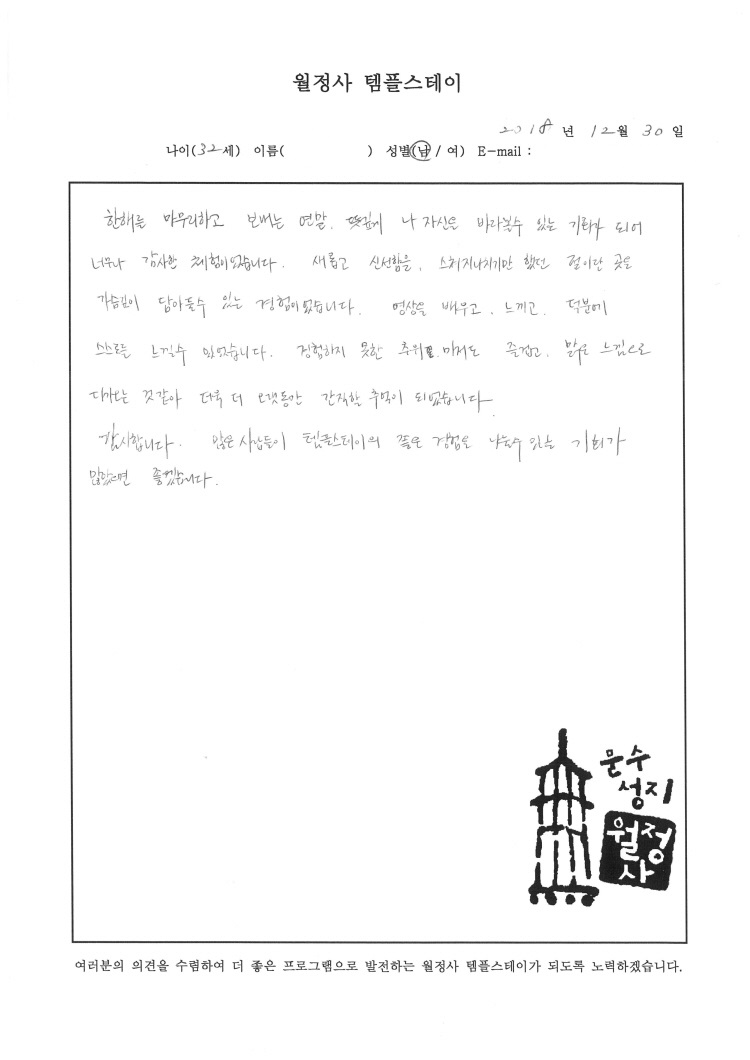 월정사 템플스테이
2018 년 12월 30일
나이(32세) 이름( ) 성별(남 / 여) E-mail :
한해를 마무리하고 보내는 연말, 뜻깊게 나 자신을 바라볼수 있는 기회가 되어
너무나 감사한 체험이었습니다. 새롭고 신선함을, 스쳐지나가기만 했던 절이란 곳을
가슴깊이 담아둘수 있는 경험이었습니다. 명상을 배우고, 느끼고, 덕분에
스스로를 느낄수 있었습니다. 경험하지 못한 추위 마저도 즐겁고, 맑은 느낌으로
다가오는 것같아 더욱 더 오랫동안 간직할 추억이 되었습니다.
감사합니다. 많은 사람들이 템플스테이의 좋은 경험을 나눌수 있는 기회가
많았으면 좋겠습니다.
문수
성지
월정
사
여러분의 의견을 수렴하여 더 좋은 프로그램으로 발전하는 월정사 템플스테이가 되도록 노력하겠습니다.